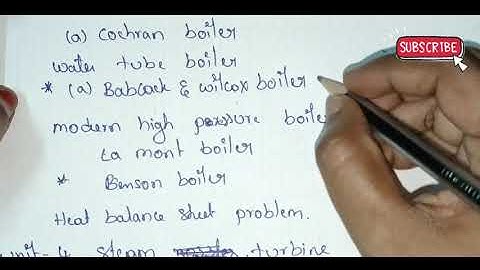 (a) Cochran boiler
SUBSCRIBE
water tube boiler
* (a) Babcock & wilcox boiler
modern high pressure boile
La mont boiler
* Benson boiler
Heat balance sheet problem.
unit-4 steam turbine